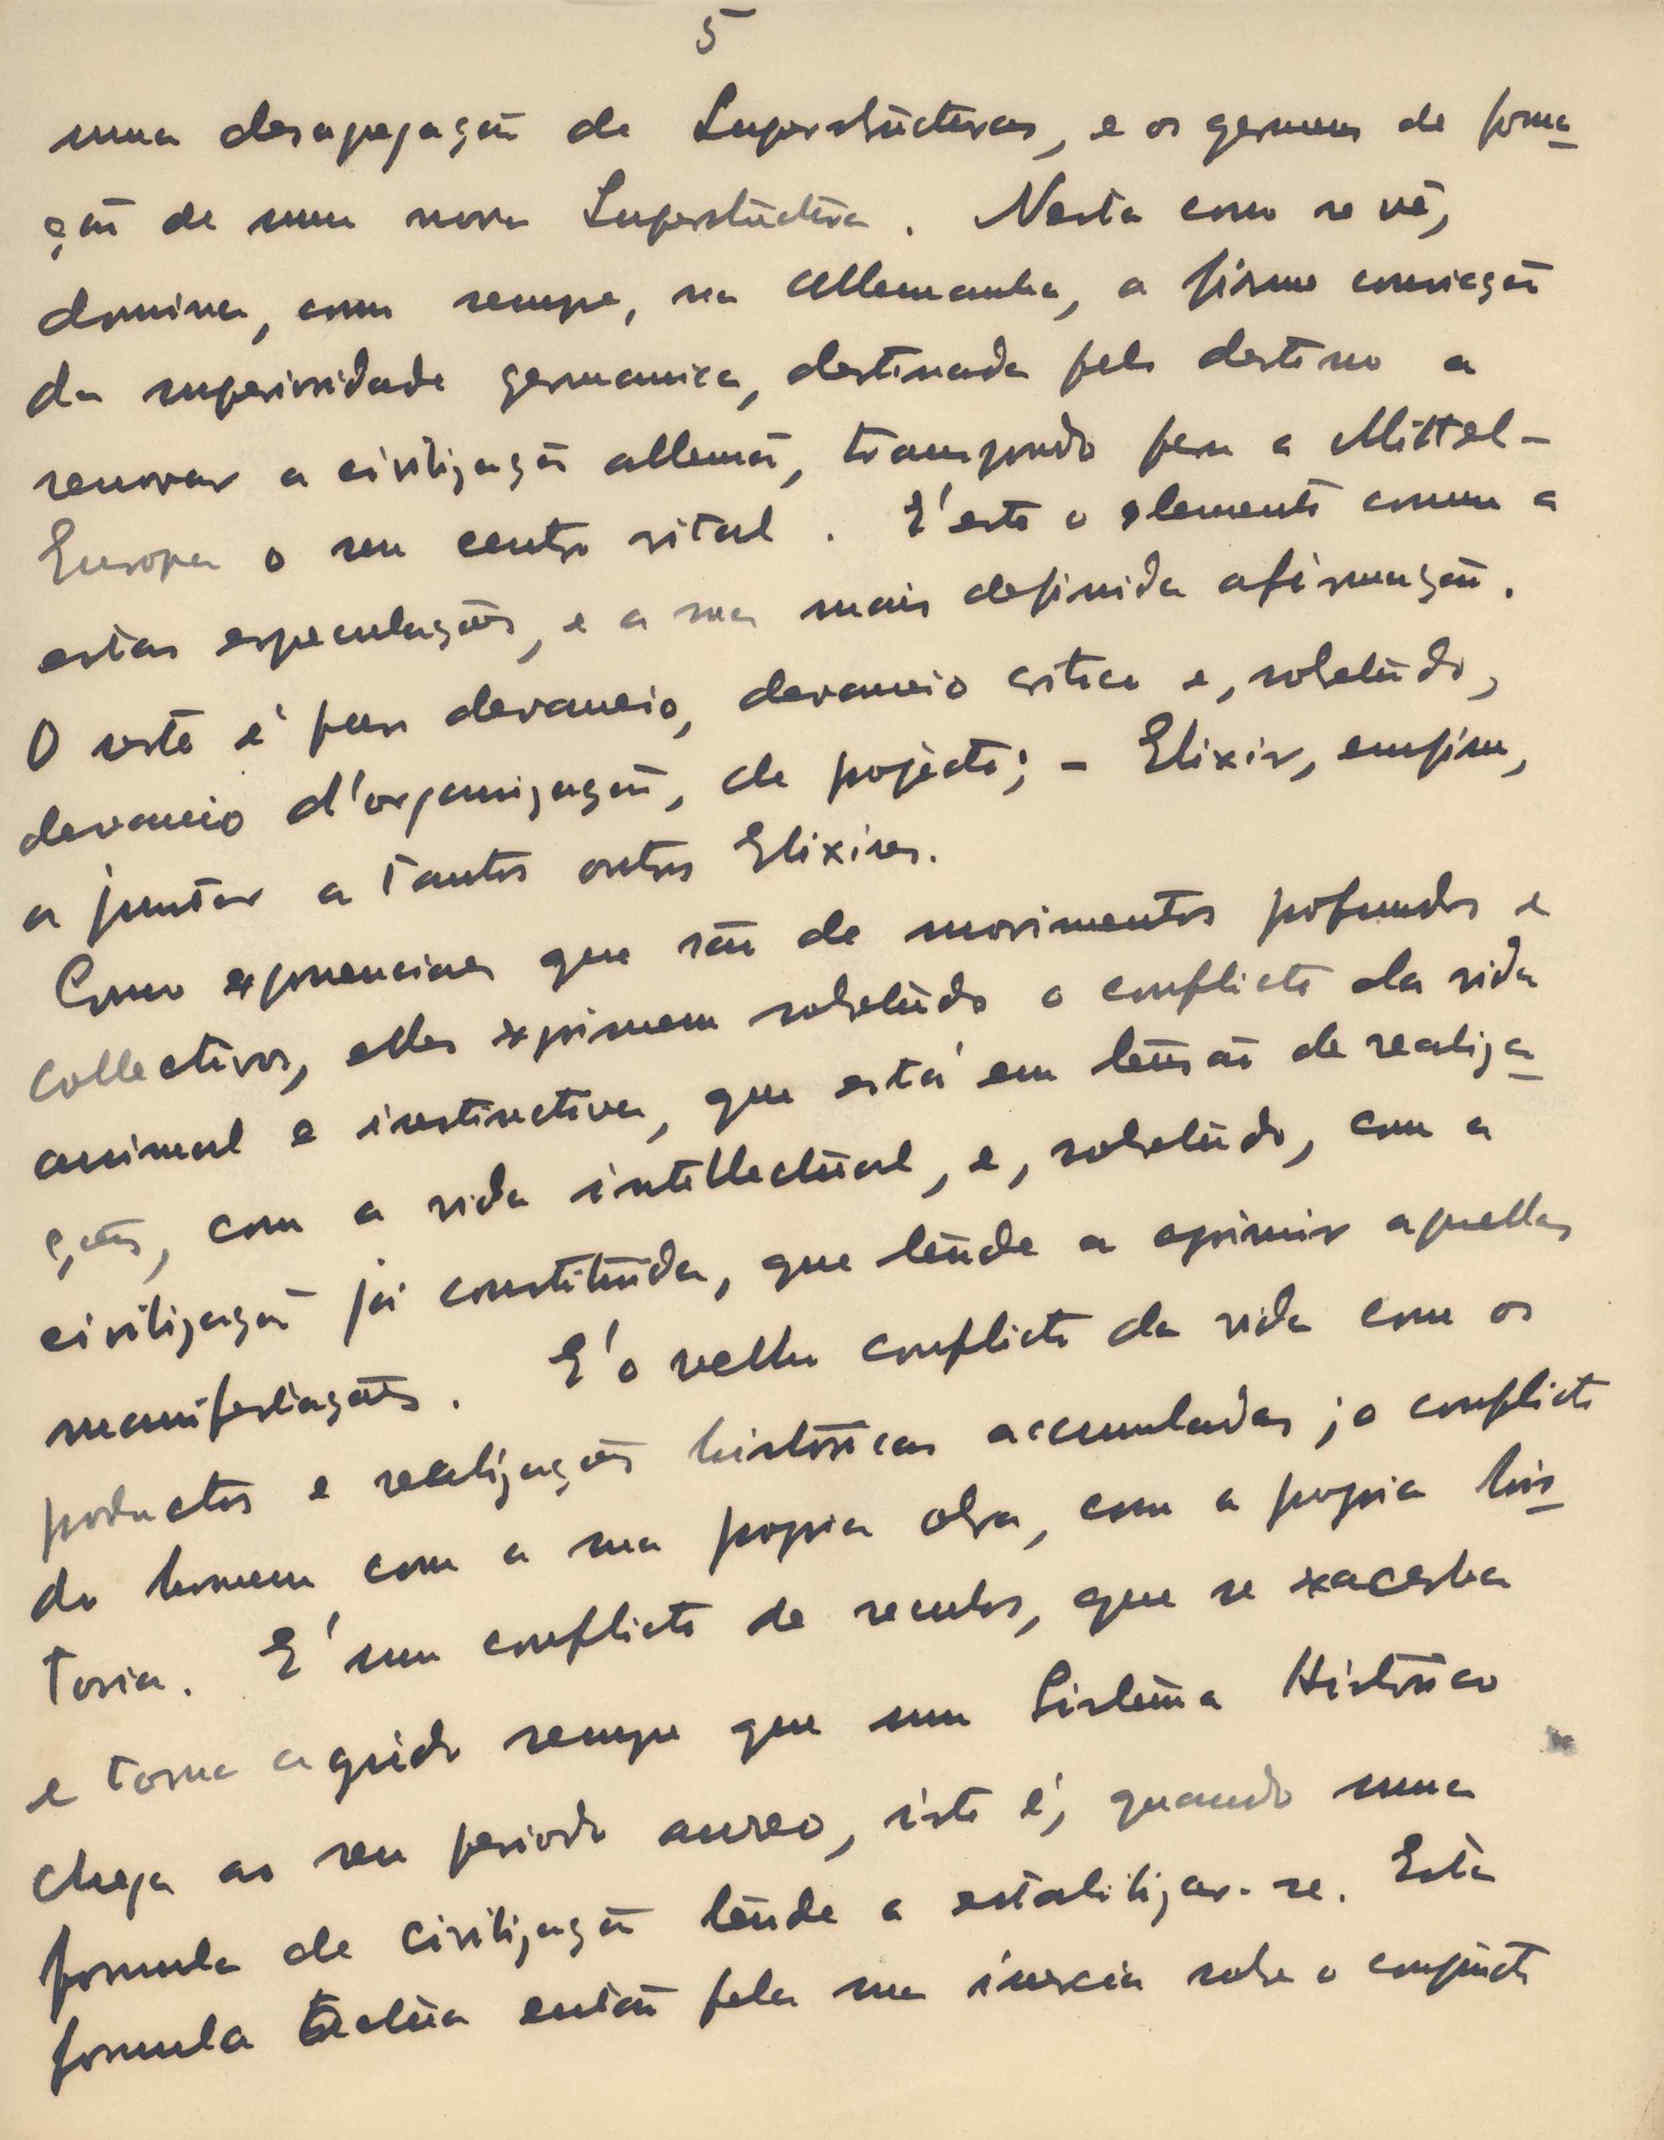 5
uma desagregação de Superstructuras, e os germens de forma-
ção de uma nova Superstructura. Nesta como se vê,
domina, como sempre, na Allemanha, a firme convicção
da superioridade germanica, destinada pelo destino a
renovar a civilização allemã, transpondo para a Mittel-
Europa o seu centro vital. E' este o elemento comum a
estas especulações, e a sua mais definida afirmação.
O resto é puro devaneio, devaneio critico e, sobretudo,
devaneio d'organização, de projecto; - Elixir, emfim,
a juntar a tantos outros Elixires.
Como exponenciaes que são de movimentos profundos e
collectivos, elles exprimem sobretudo o conflicto da vida
animal e instinctiva, que está em tensão de realiza-
ções, com a vida intellectual, e, sobretudo, com a
civilização já constituida, que tende a oprimir aquellas
manifestações. E' o velho conflicto da vida com os
productos e realizações históricas accumuladas; o conflicto
do homem com a sua propria obra, com a propria his-
toria. E' um conflicto de seculos, que se exacerba
e torna agudo sempre que um Sistema Histórico
chega ao seu periodo aureo, isto é, quando uma
formula de civilização tende a estabilizar-se. Esta
formula actua então pela sua inercia sobre o conjuncto